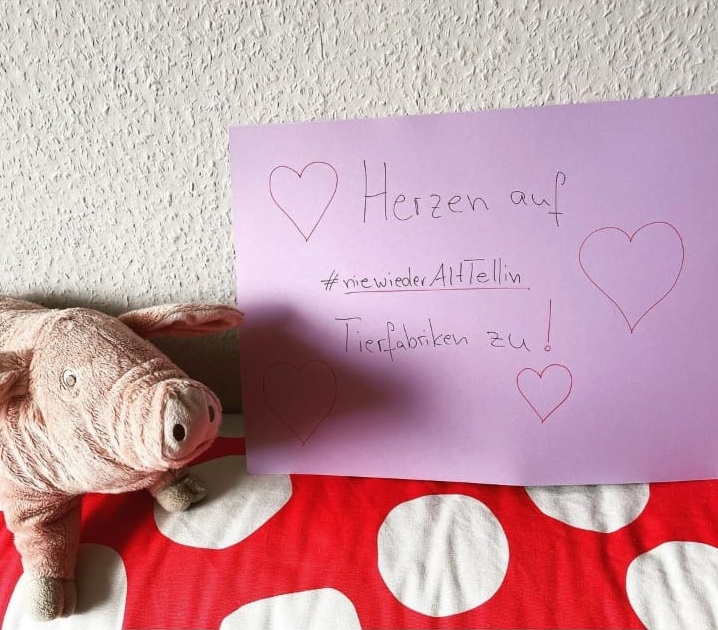 Herzen auf
#niewiederAltTellin
Tierfabriken zu!